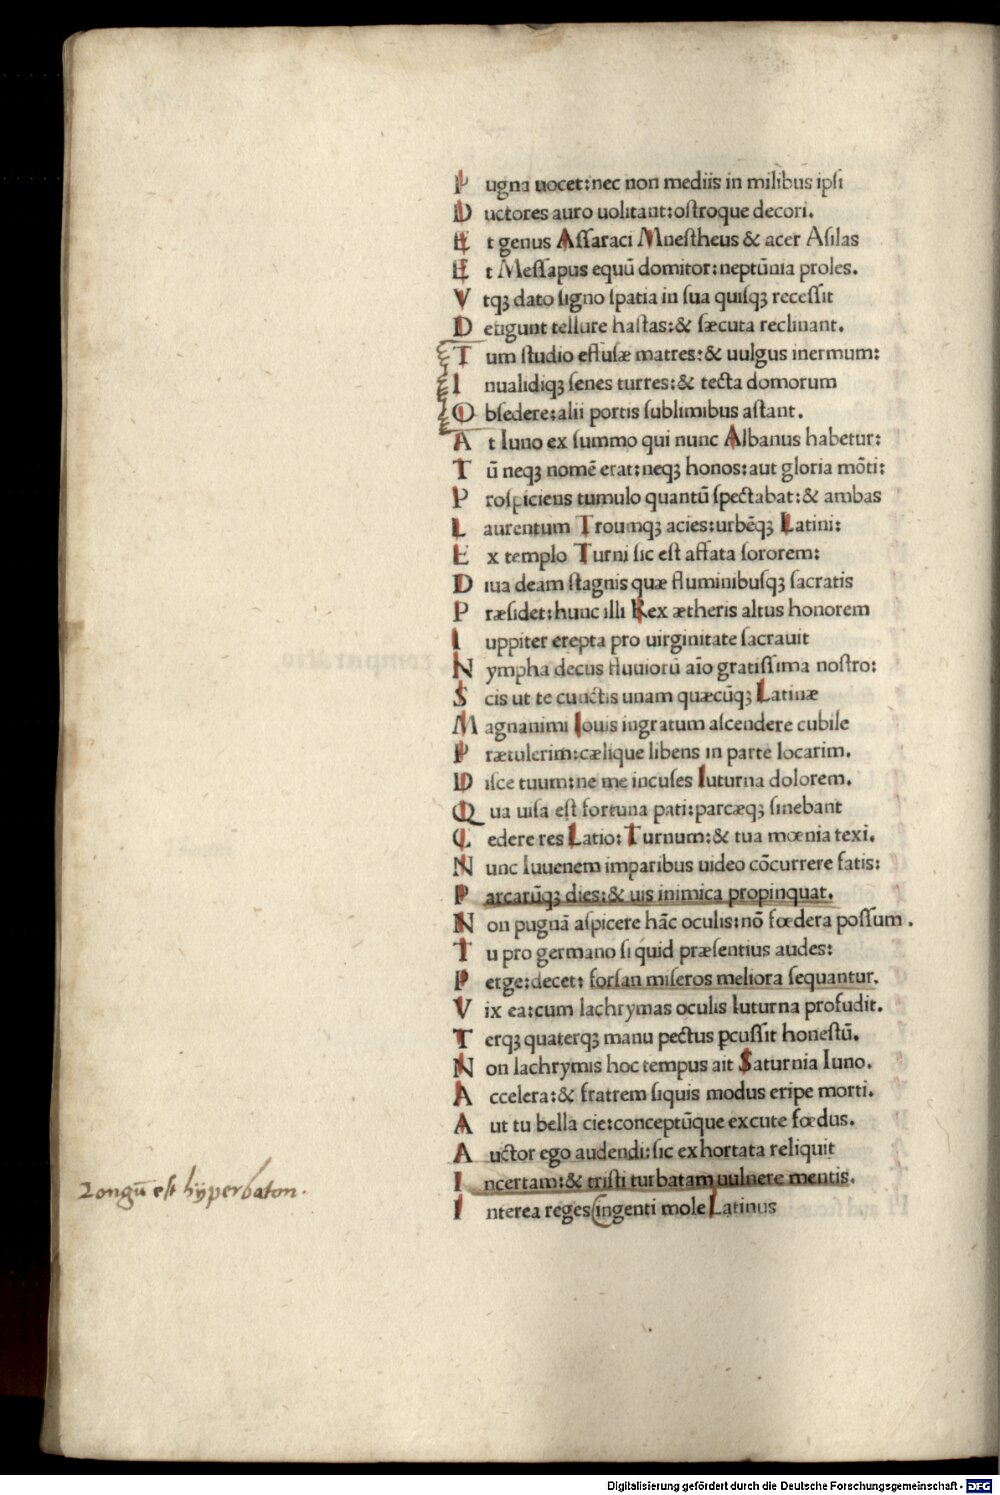 P ugna uocet: nec non mediis in milibus ipſi
D uctores auro uolitant: oſtroque decori.
E t genus Aſſaraci Mneſtheus & acer Aſilas
E t Meſſapus equū domitor: neptūnia proles.
V tqꝫ dato ſigno ſpatia in ſua quiſqꝫ receſſit
D efigunt tellure haſtas: & ſæcuta reclinant.
T um ſtudio effuſæ matres: & uulgus inermum:
I nualidiqꝫ ſenes turres: & tecta domorum
O bſedere: alii portis ſublimibus aſtant.
A t Iuno ex ſummo qui nunc Albanus habetur:
T ū neqꝫ nomē erat: neqꝫ honos: aut gloria mōti:
P roſpiciens tumulo quantū ſpectabat: & ambas
L aurentum Troumqꝫ acies: urbēqꝫ Latini:
E x templo Turni ſic eſt affata ſororem:
D iua deam ſtagnis quæ fluminibuſqꝫ ſacratis
P ræſidet: hunc illi Rex ætheris altus honorem
I uppiter erepta pro uirginitate ſacrauit
N ympha decus fluuiorū aīo gratiſſima noſtro:
S cis ut te cunctis unam quæcūqꝫ Latinæ
M agnanimi Iouis ingratum aſcendere cubile
P rætulerim: cælique libens in parte locarim.
D iſce tuum: ne me incuſes Iuturna dolorem.
Q ua uiſa eſt fortuna pati: parcæqꝫ ſinebant
C edere res Latio: Turnum: & tua mœnia texi.
N unc Iuuenem imparibus uideo cōcurrere fatis:
P arcarūqꝫ dies: & uis inimica propinquat.
N on pugnā aſpicere hāc oculis: nō fœdera poſſum.
T u pro germano ſi quid præſentius audes:
P erge: decet: forſan miſeros meliora ſequantur.
V ix ea: cum lachrymas oculis Iuturna profudit.
T erqꝫ quaterqꝫ manu pectus ꝑcuſſit honeſtū.
N on lachrymis hoc tempus ait Saturnia Iuno.
A ccelera: & fratrem ſiquis modus eripe morti.
A ut tu bella cie: conceptūque excute fœdus.
A uctor ego audendi: ſic exhortata reliquit
I ncertam: & triſti turbatam uulnere mentis.
Longū eſt hÿperbaton.
I nterea reges ingenti mole Latinus
Digitalisierung gefördert durch die Deutsche Forschungsgemeinschaft - DFG